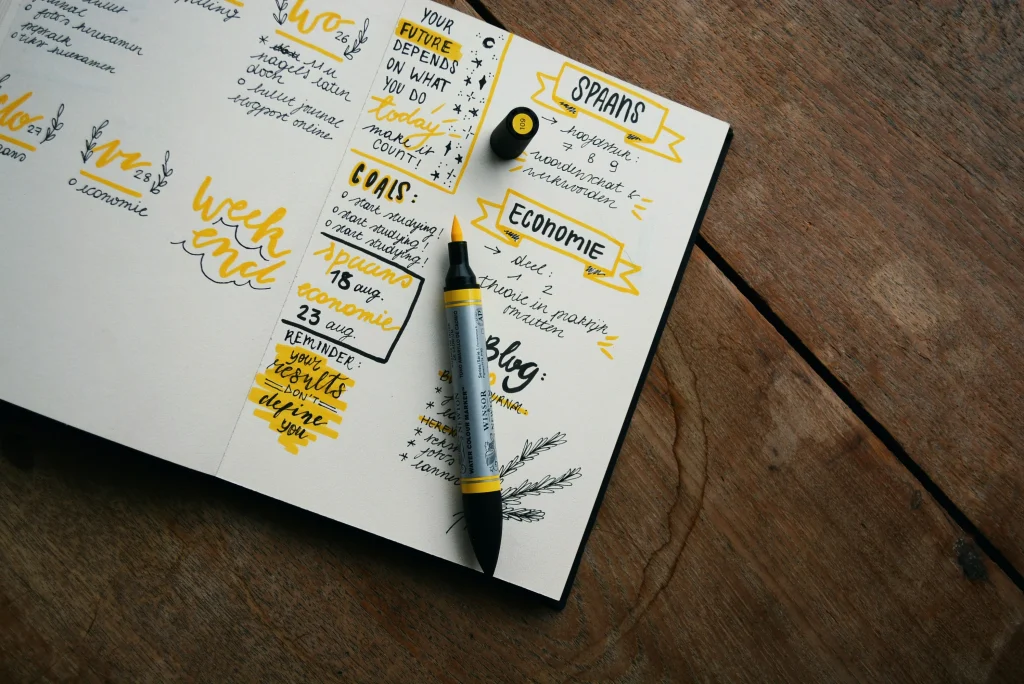 bullet
o fotos herexamen
o tekst herexamen
WO
26
* 11u
nagels laten
doen
o bullet journal
blogpost online
DO
27
VR
28
o economie
Week
end
YOUR
FUTURE
DEPENDS
ON WHAT
YOU DO
today
make it
COUNT!
GOALS:
o start studying!
o start studying!
o start studying!
Spaans
18 aug.
economie
23 aug.
REMINDER:
your
results
DON'T
define
you
SPAANS
→ hoofdstuk:
7 8 9
woordenschat &
werkwoorden
ECONOMIE
→ deel:
1 2
theorie in praktijk
omzetten
Blog:
JOURNAL:
HEREX
*
* fotos
* banner
109
WATER COLOUR MARKER
WINSOR